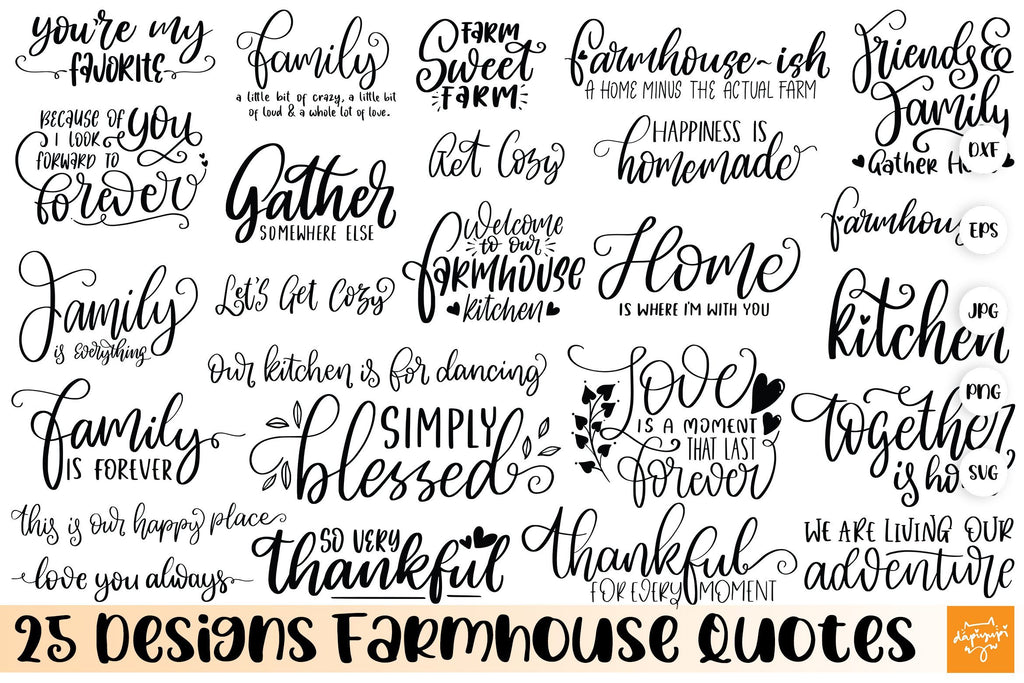 you're my
FAVORITE
family
a little bit of crazy, a little bit
of loud & a whole lot of love.
FARM
Sweet
FARM
farmhouse~ish
A HOME MINUS THE ACTUAL FARM
friends &
family
Gather H
DXF
BECAUSE OF YOU
I LOOK
FORWARD TO
forever
Gather
SOMEWHERE ELSE
Get Cozy
HAPPINESS IS
homemade
farmhou
EPS
family
is everything
Let's Get Cozy
Welcome
to our
FARMHOUSE
kitchen
Home
IS WHERE I'M WITH YOU
kitchen
JPG
our kitchen is for dancing
family
IS FOREVER
SIMPLY
blessed
Love
IS A MOMENT
THAT LAST
forever
PNG
together
is ho
SVG
this is our happy place
love you always
SO VERY
thankful
thankful
FOR EVERY MOMENT
WE ARE LIVING OUR
adventure
25 Designs Farmhouse Quotes
dapiyupi